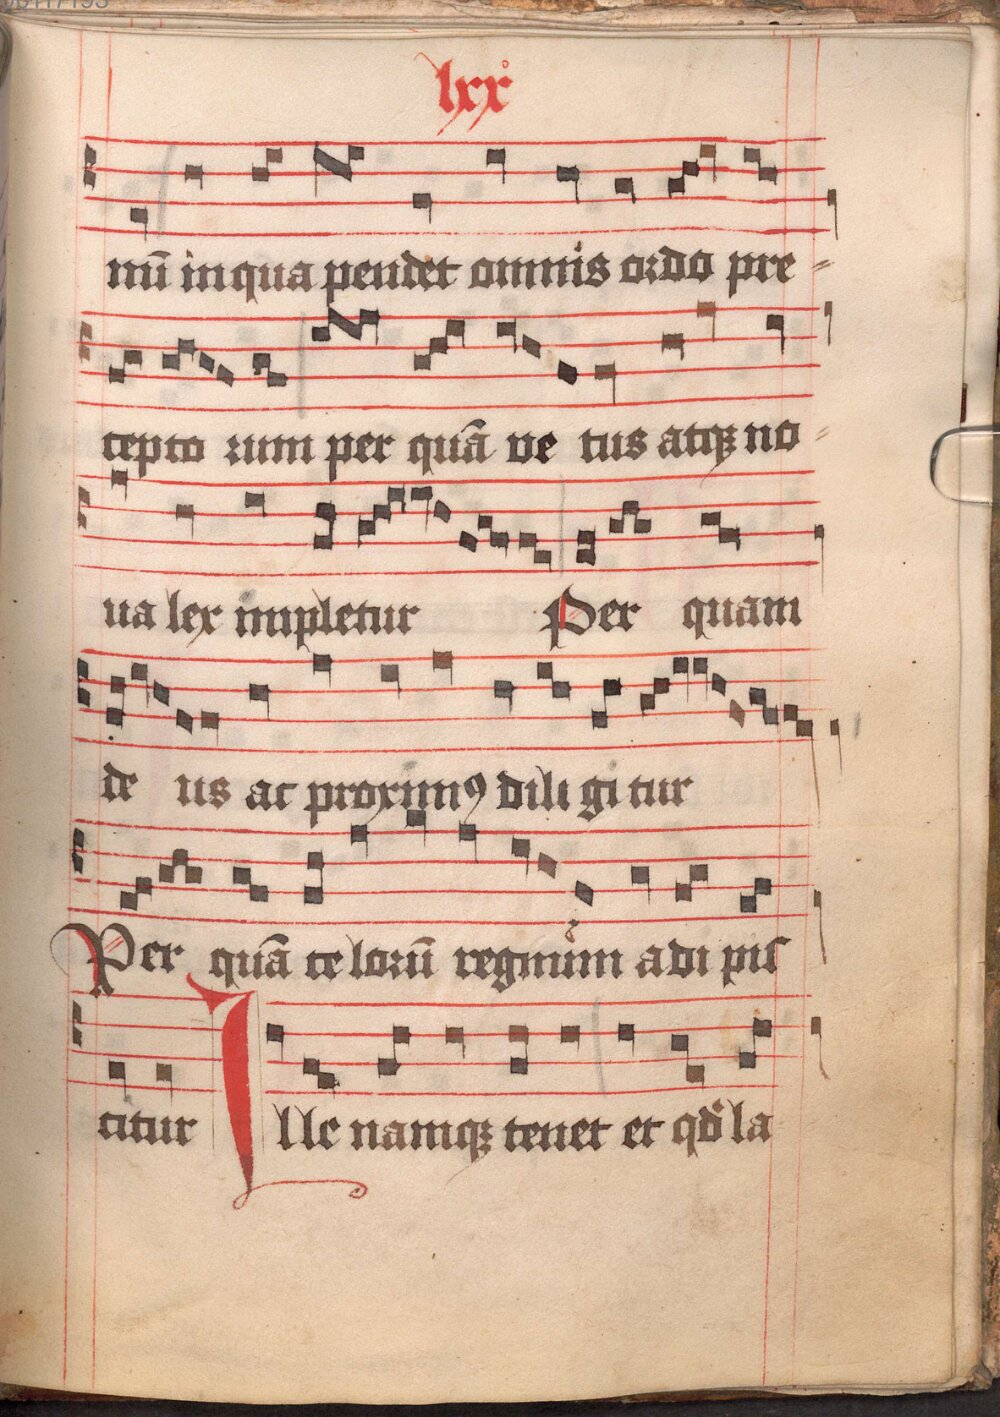 lxx°
nū in qua pendet omnis ordo pre⸗
cepto rum per quā ve tus atqꝫ no⸗
ua lex impletur Per quam
de us ac proximꝯ dili gi tur
Per quā ce lorū regnum adi pis
citur Ille namqꝫ tenet et qd̄ la